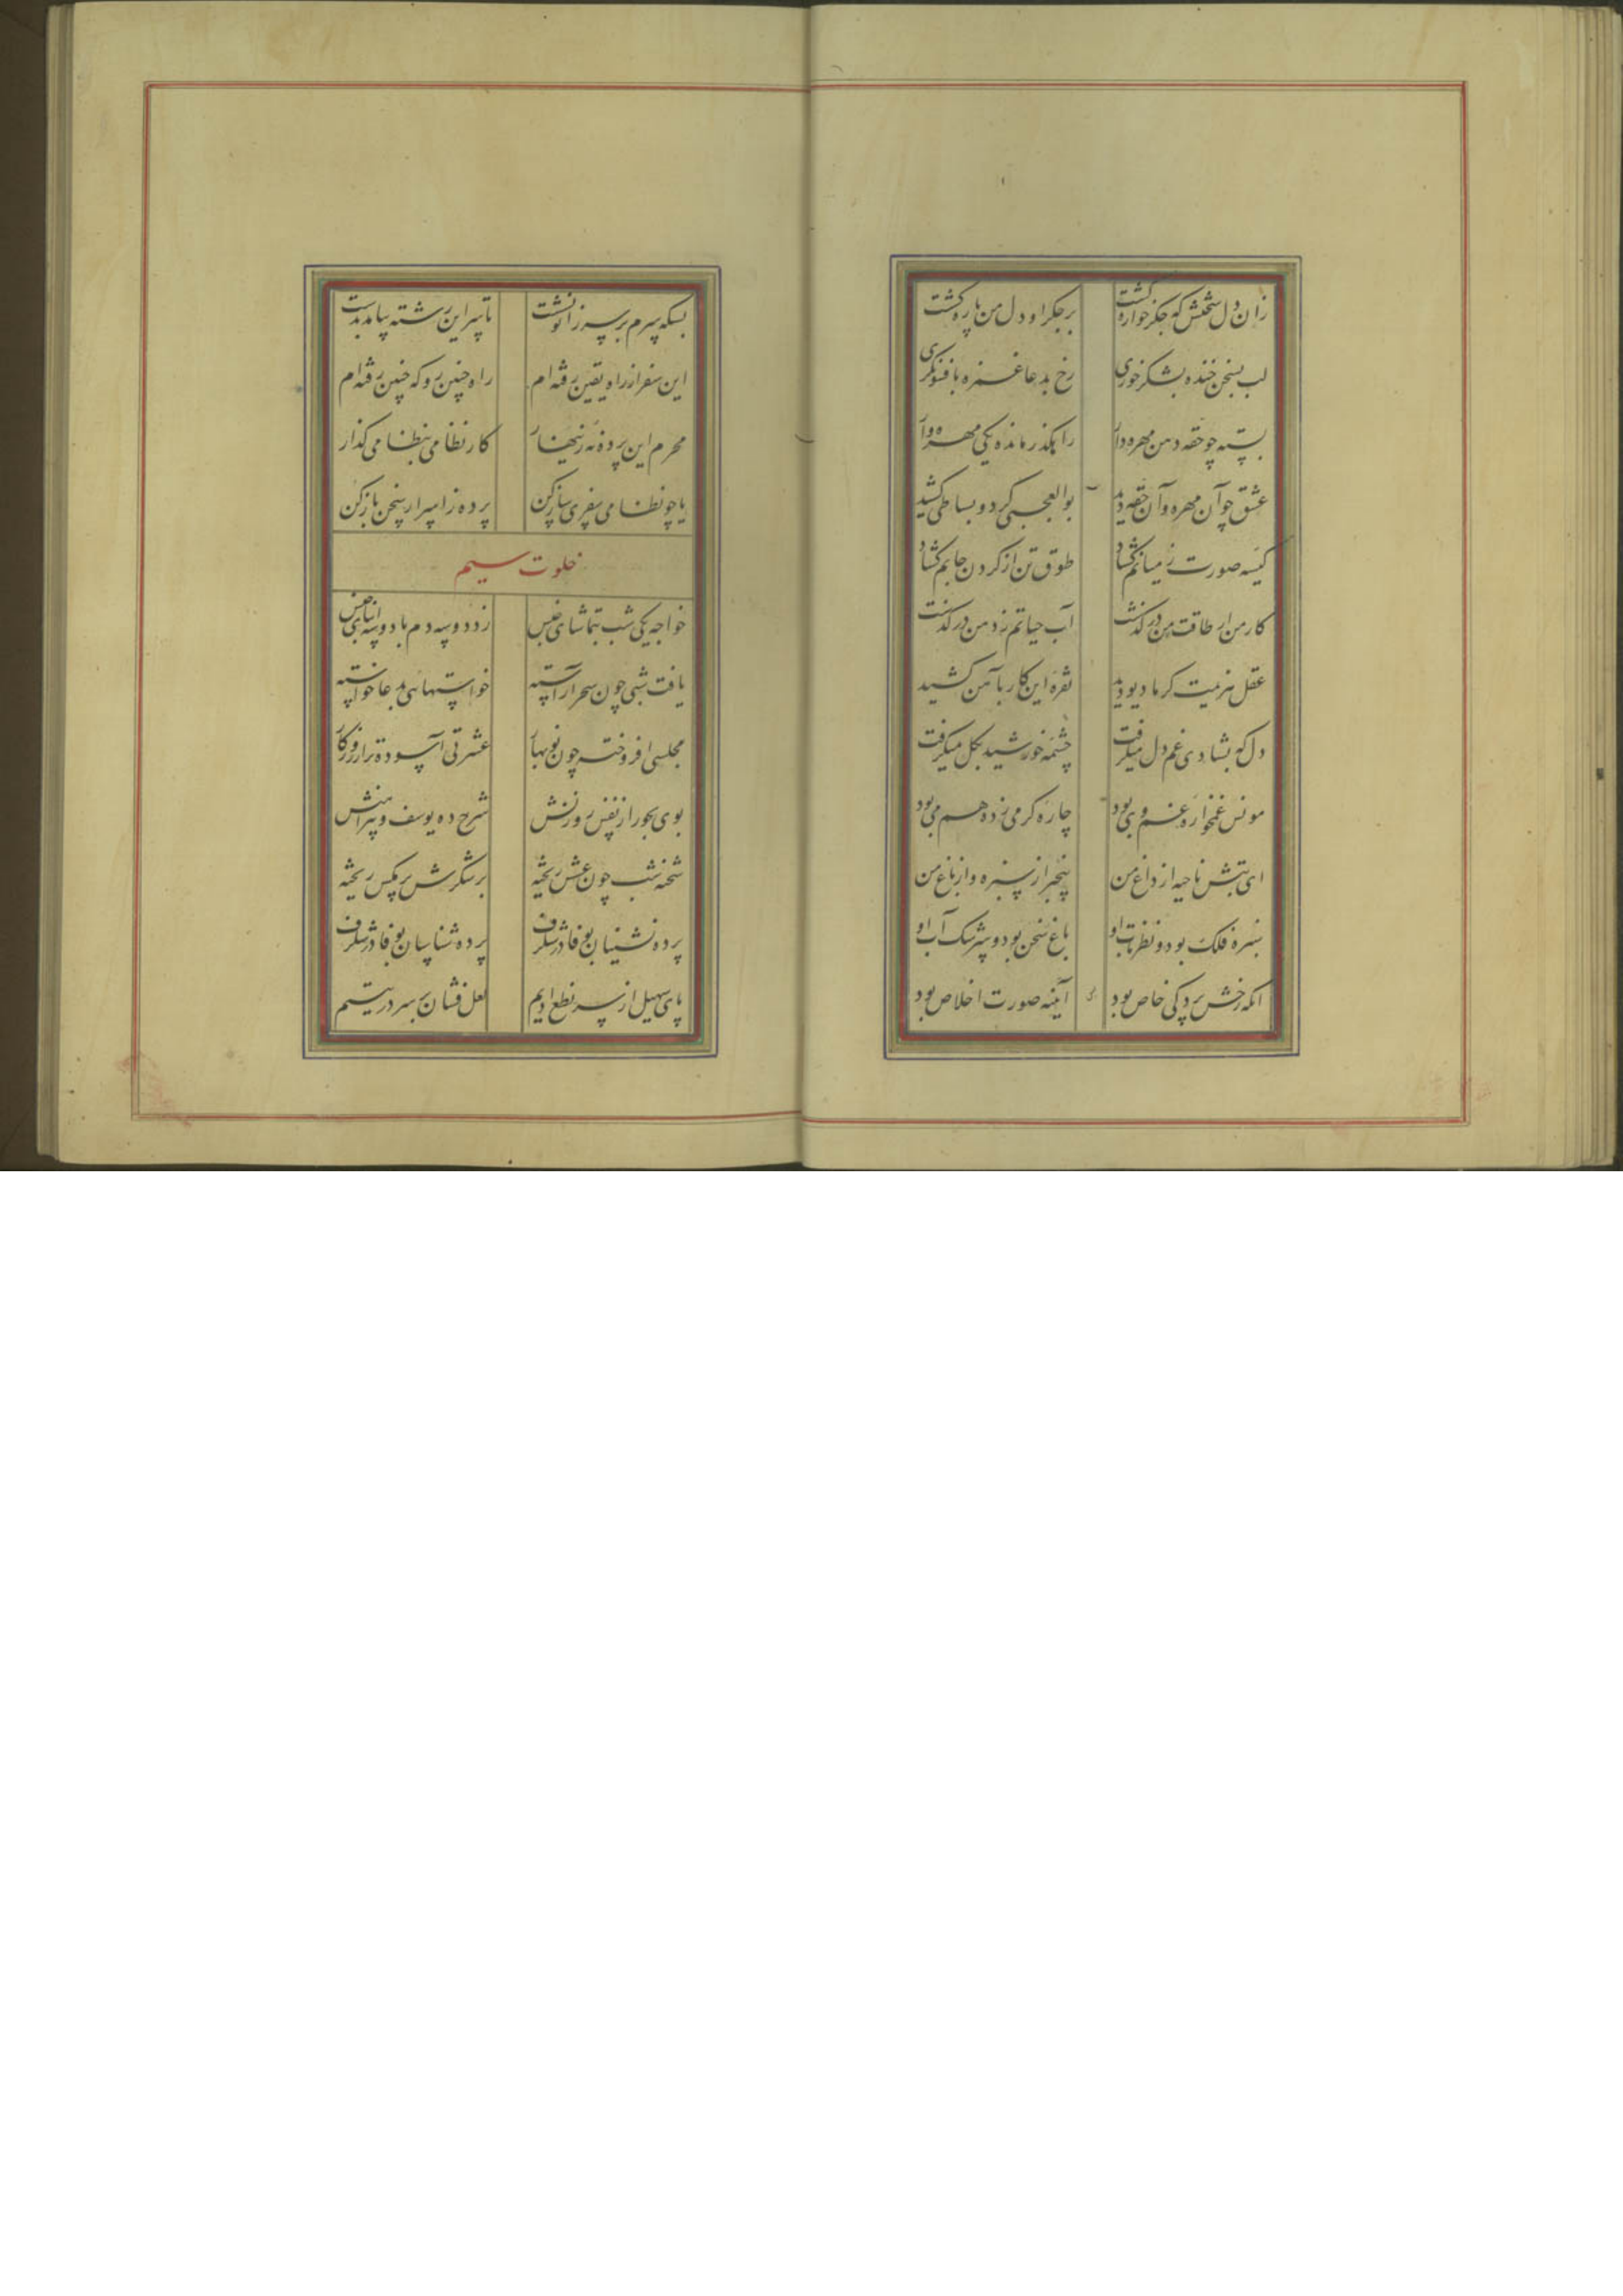 زان دل سختش که جگر خواره گشت بر جگر او دل من پاره گشت
لب بسخن خنده بشکر خوری رخ بدعا غمزه بافسونگری
بسته چو حقه دهن مهره دار راهگذر مانده یکی مهره وار
عشق چو آن مهره و آن حقه دید بوالعجبی کرد و بساطی کشید
کیسه صورت ز میانم گشاد طوق تن از گردن جانم گشاد
کار من از طاقت من در گذشت آب حیاتم ز دهن در گذشت
عقل هزیمت گر ما دیو دید نقره این کار بآهن کشید
دل که بشادی غم دل میگرفت چشمه خورشید بگل میگرفت
مونس غمخواره غم وی بود چاره گر می زده هم می بود
ای بتبش ناحیه از داغ من بیخبر از سبزه و از باغ من
سبزه فلک بود و نظر تاب او باغ سخن بود و سرشک آب او
آنکه رخش پردگی خاص بود آینه صورت اخلاص بود
بسکه سرم بر سر زانو نشست تا سر این رشته بیامد بدست
این سفر از راه یقین رفته ام راه چنین رو که چنین رفته ام
محرم این پرده نه زینهار کار نظامی بنظامی گذار
یا چو نظامی سفری ساز کن پرده ز اسرار سخن باز کن
خلوت سیم
خواجه یکی شب بتماشای جنس زد دو سه دم با دو سه ابنای جنس
یافت شبی چون سحر آراسته خواستهای بدعا خواسته
مجلسی افروخته چون نوبهار عشرتی آسوده تر از روزگار
بوی بخور از نفس روزنش شرح ده یوسف و پیراهنش
شحنه شب چون عسس ریخته بر شکرش پر مگس ریخته
پرده نشینان بوفا در شگرف پرده شناسان بوفا در شگرف
پای سهیل از سر نطع ادیم لعل فشان بر سر در یتیم